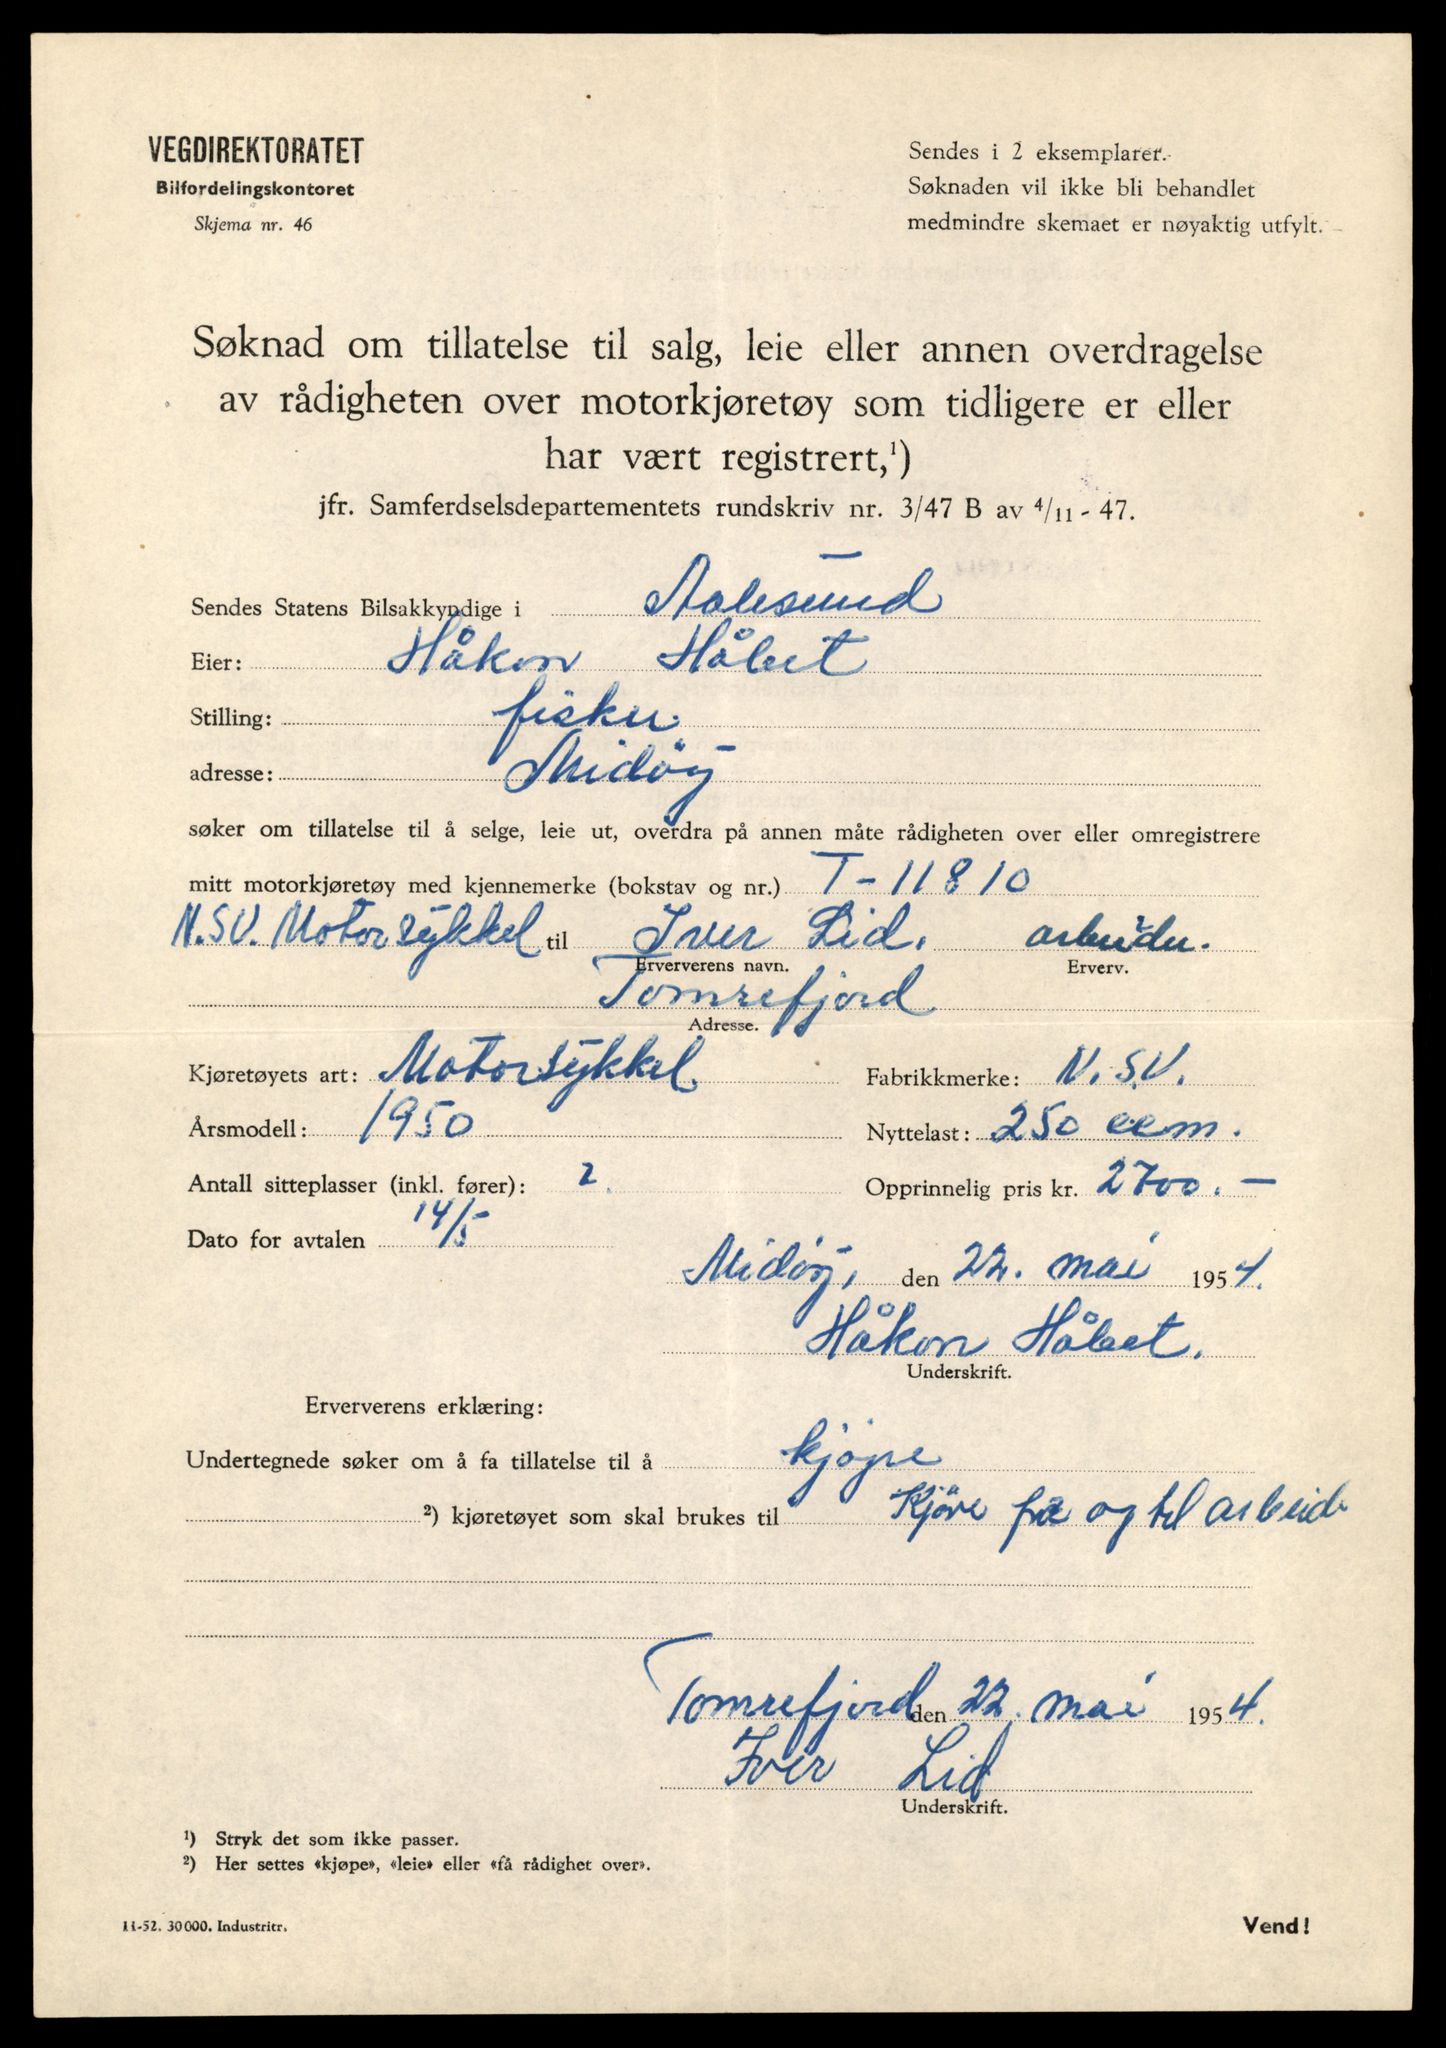 VEGDIREKTORATET
Bilfordelingskontoret
Skjema nr. 46
Sendes i 2 eksemplarer.
Søknaden vil ikke bli behandlet
medmindre skemaet er nøyaktig utfylt.
Søknad om tillatelse til salg, leie eller annen overdragelse
av rådigheten over motorkjøretøy som tidligere er eller
har vært registrert,¹)
jfr. Samferdselsdepartementets rundskriv nr. 3/47 B av 4/11 - 47.
Sendes Statens Bilsakkyndige i Aalesund
Eier: Håkon
Stilling: fisker.
adresse: Midöy
søker om tillatelse til å selge, leie ut, overdra på annen måte rådigheten over eller omregistrere
mitt motorkjøretøy med kjennemerke (bokstav og nr.) T-11810
N.S.U. Motorsykkel til Iver Lid. arbeider.
Erververens navn. Erverv.
Tomrefjord
Adresse.
Kjøretøyets art: Motorsykkel Fabrikkmerke: N.S.U.
Årsmodell: 1950 Nyttelast: 250 ccm.
Antall sitteplasser (inkl. fører): 2. Opprinnelig pris kr. 2700.-
Dato for avtalen 14/5
Midöy, den 22. mai 1954.
Håkon
Underskrift.
Erververens erklæring:
Undertegnede søker om å fa tillatelse til å kjøpe
²) kjøretøyet som skal brukes til Kjöre fra og til arbeide
Tomrefjord den 22. mai 1954.
Iver Lid
Underskrift.
¹) Stryk det som ikke passer.
²) Her settes «kjøpe», «leie» eller «få rådighet over».
11-52. 30000. Industritr.
Vend!